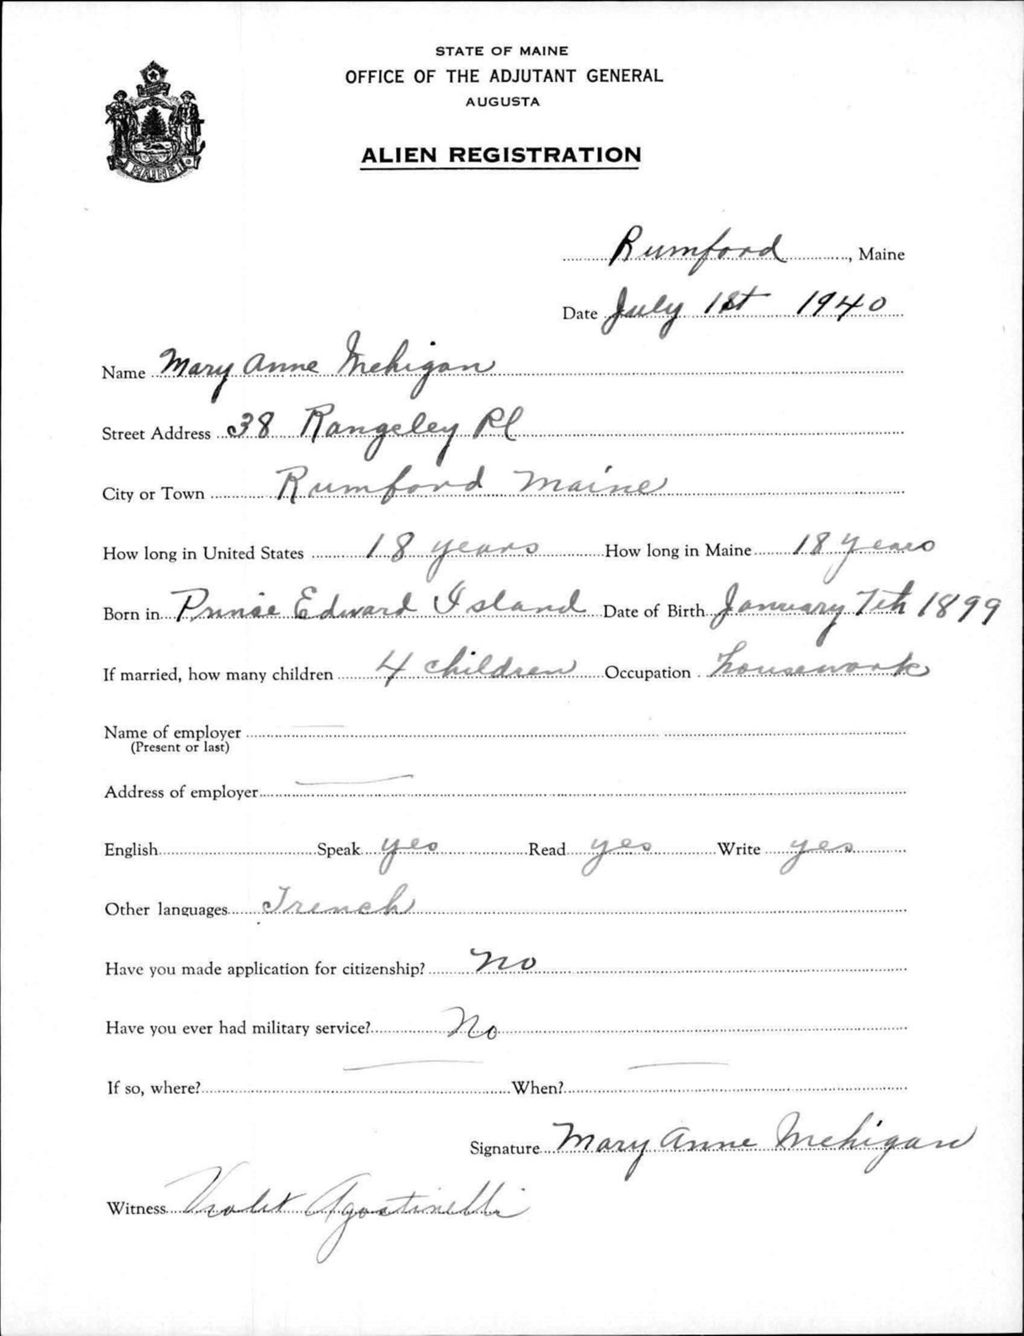 STATE OF MAINE
OFFICE OF THE ADJUTANT GENERAL
AUGUSTA
ALIEN REGISTRATION
MAINE
Rumford, Maine
Date July 1st 1940
Name Mary Anne Mehigan
Street Address 38 Rangeley Pl
City or Town Rumford Maine
How long in United States 18 years How long in Maine 18 years
Born in Prince Edward Island Date of Birth January 7th 1899
If married, how many children 4 children Occupation housework
Name of employer
(Present or last)
Address of employer
English Speak yes Read yes Write yes
Other languages French
Have you made application for citizenship? No
Have you ever had military service? No
If so, where? When?
Signature Mary Anne Mehigan
Witness Violet Agostinelli